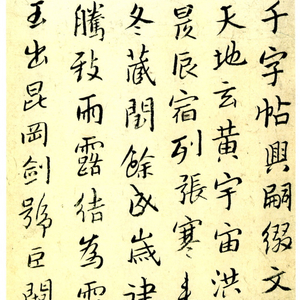 千字帖興嗣綴文
天地玄黃宇宙洪
昃辰宿列張寒来
冬藏閏餘成歲律
騰致雨露結為
玉出昆岡劍號巨闕